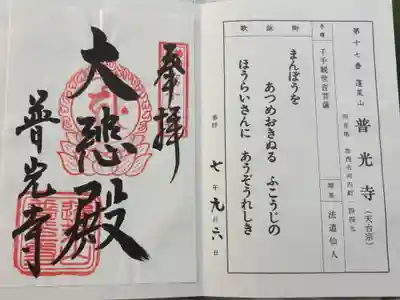 奉拝
大悲殿
普光寺
第十七番 蓬莱山 普光寺 (天台宗)
所在地 加西市河内町一四四九
本尊 千手観世音菩薩
開基 法道仙人
御詠歌
まんぽうを
あつめおきぬる ふこうじの
ほうらいさんに あうぞうれしき
参拝 七年九月六日